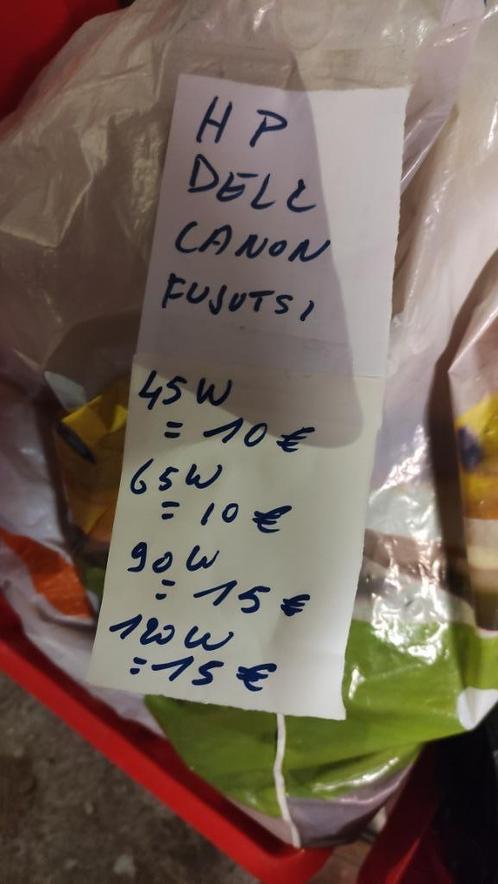 HP
DELL
CANON
FUJUTSI
45W
= 10 €
65W
= 10 €
90W
= 15 €
120W
= 15 €